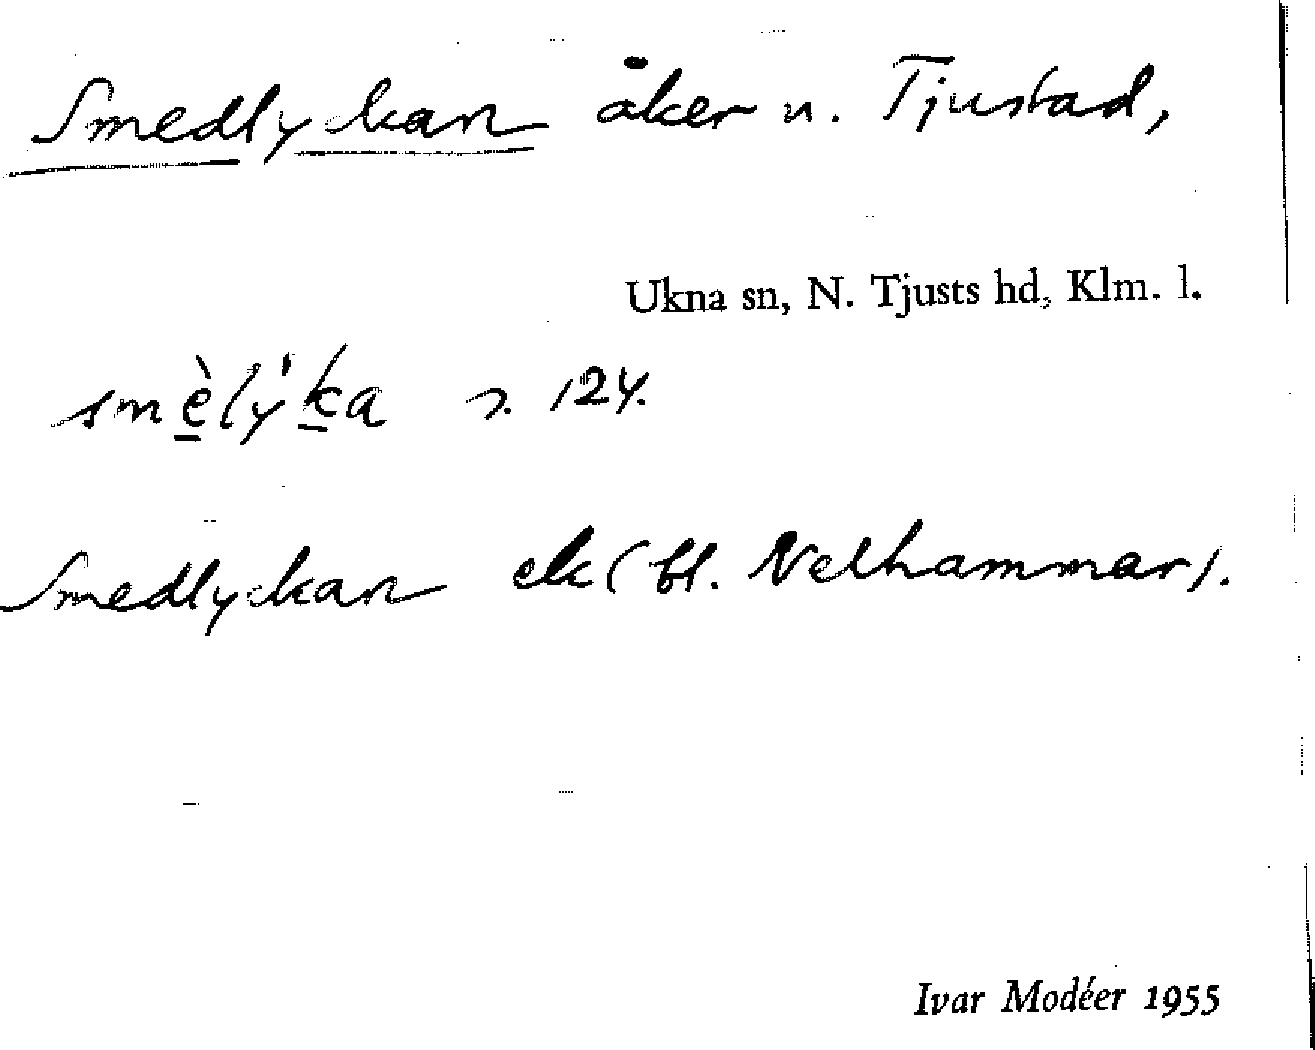 Smedlyckan åker u. Tjustad,
Ukna sn, N. Tjusts hd, Klm. l.
smèlýka s. 124.
Smedlyckan ek (bl. Nelhammar).
Ivar Modéer 1955